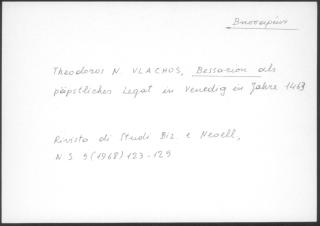 Bessarion
Theodoros N. VLACHOS, Bessarion als
päpstlicher Legat in Venedig in Jahre 1463
Rivista di Studi Biz. e Neoell,
N.S. 5 (1968) 123-125